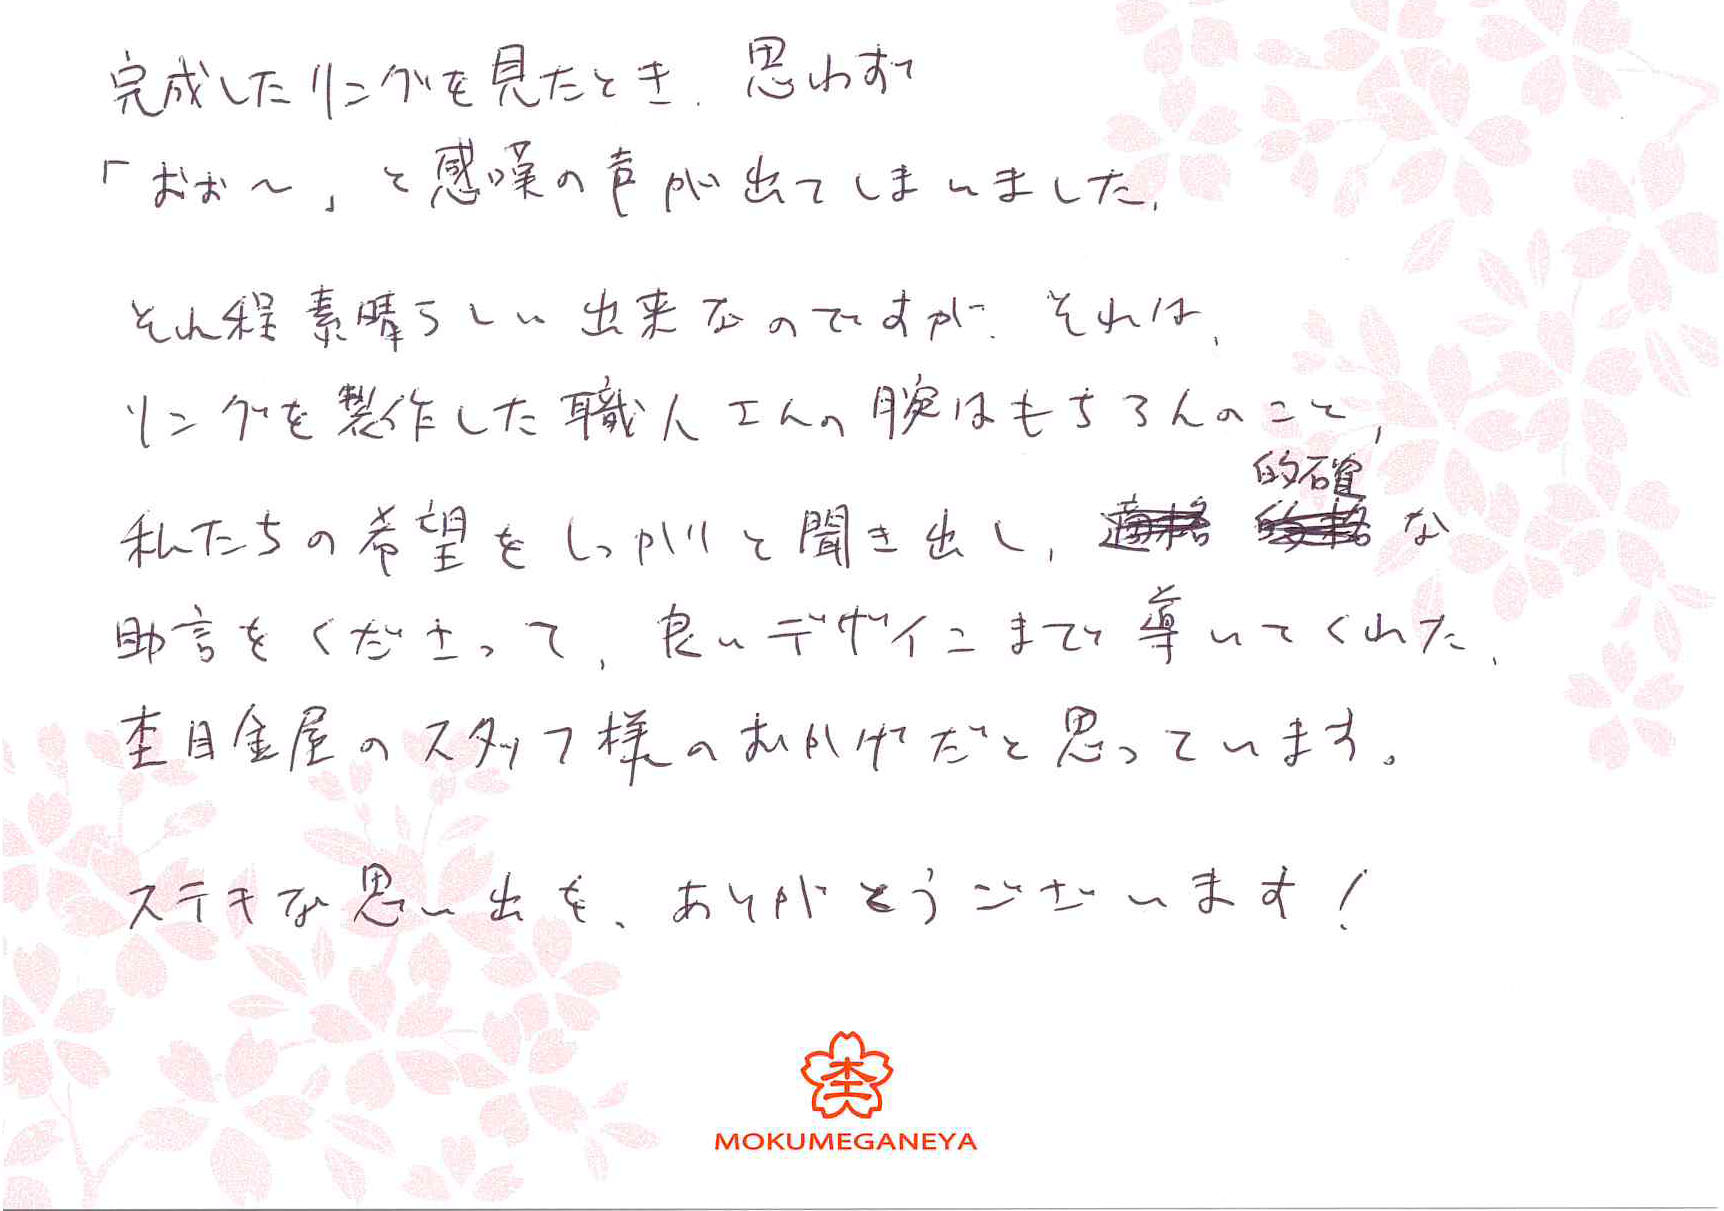 完成したリングを見たとき、思わず
「おぉ～」と感嘆の声が出てしまいました。
それ程素晴らしい出来なのですが、それは、
リングを製作した職人さんの腕はもちろんのこと、
的確
私たちの希望をしっかりと聞き出し、適格 的格 な
助言をくださって、良いデザインまで導いてくれた、
杢目金屋のスタッフ様のおかげだと思っています。
ステキな思い出を、ありがとうございます！
杢
MOKUMEGANEYA